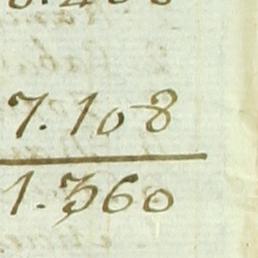 7.108
1.360